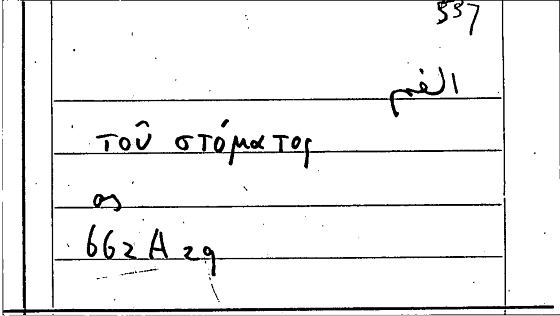 537
الفم
τοῦ στόματος
os
662 A 29